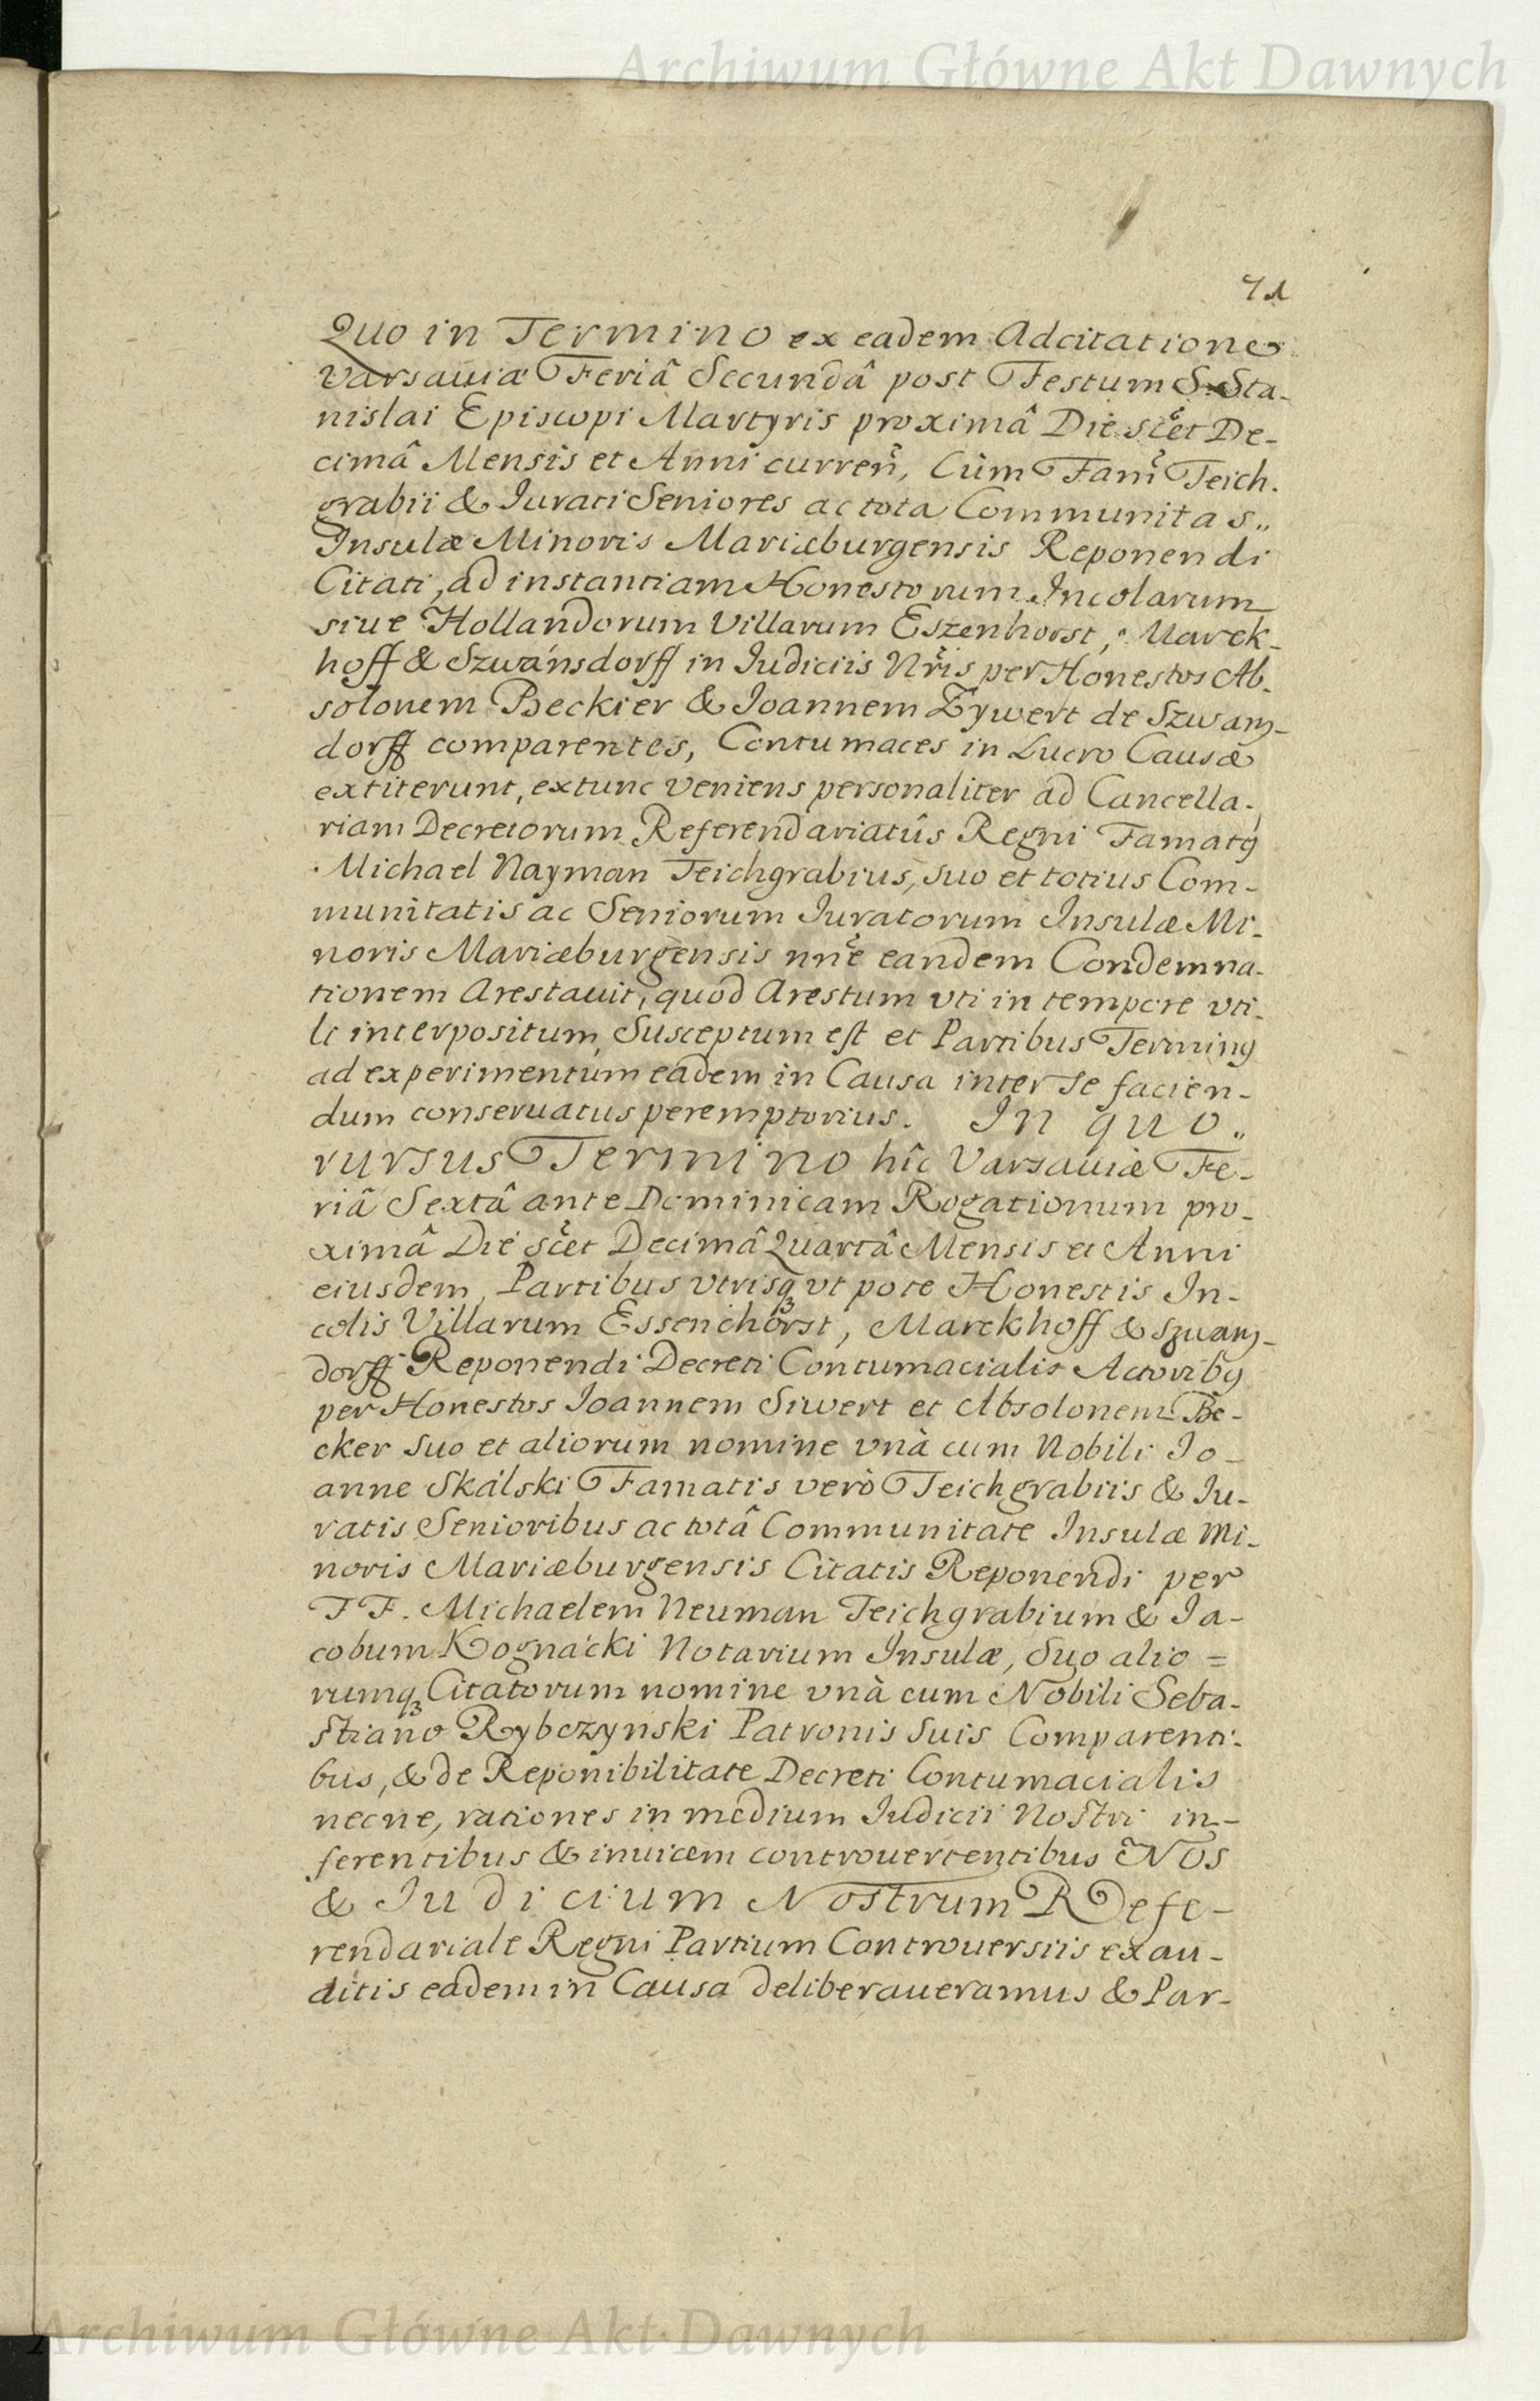 Archiwum Główne Akt Dawnych
71
Quo in Termino ex eadem Adcitatione
Varsauiæ Feriâ Secundâ post Festum S. Sta-
nislai Episcopi Martyris proximâ Die scet De-
cimâ Mensis et Anni curren, Cùm Fam Teich-
grabii & Iurati Seniores ac tota Communitas
Insulæ Minoris Mariæburgensis Reponendi
Citati, ad instantiam Honestorum Incolarum
siue Hollandorum Villarum Eszenhorst, Marek-
hoff & Szwánsdorff in Iudiciis Nris per Honestos Ab-
solonem Beckier & Joannem Zywert de Szwans-
dorff comparentes, Contumaces in Lucro Causæ
extiterunt, extunc veniens personaliter ad Cancella-
riam Decretorum Referendariatûs Regni Famatg
Michael Nayman Teichgrabius, suo et totius Com-
munitatis ac Seniorum Iuratorum Insulæ Mi-
noris Mariæburgensis nne eandem Condemna-
tionem Arestauit, quod Arestum vti in tempore vti-
li interpositum, Susceptum est et Partibus Terming
ad experimentum eadem in Causa inter se facien-
dum conseruatus peremptorius. In quo
rursus Termino hîc Varsauiæ Fe-
riâ Sextâ ante Dominicam Rogationum pro-
ximâ Die scet Decimâ Quartâ Mensis et Anni
eiusdem, Partibus vtrisq vt pote Honestis In-
colis Villarum Essenhorst, Marekhoff & Szwans-
dorff Reponendi Decreti Contumacialis Actoribg
per Honestos Ioannem Siwert et Absolonem Be-
cker suo et aliorum nomine vnà cum Nobili Io-
anne Skálski Famatis verò Teichgrabiis & Iu-
ratis Senioribus ac totâ Communitate Insulæ Mi-
noris Mariæburgensis Citatis Reponendi per
FF. Michaelem Neuman Teichgrabium & Ia-
cobum Kognácki Notarium Insulæ, Suo alio=
rumq Citatorum nomine vnà cum Nobili Seba-
stiano Rybczynski Patronis suis Comparenti-
bus, & de Reponibilitate Decreti Contumacialis
necne, rationes in medium Iudicii Nostri in-
ferentibus & inuicem controuertentibus Nos
& Iudicium Nostrum Refe-
rendariale Regni Partium Controuersiis exau-
ditis eadem in Causa deliberaueramus & Par-
Archiwum Główne Akt Dawnych